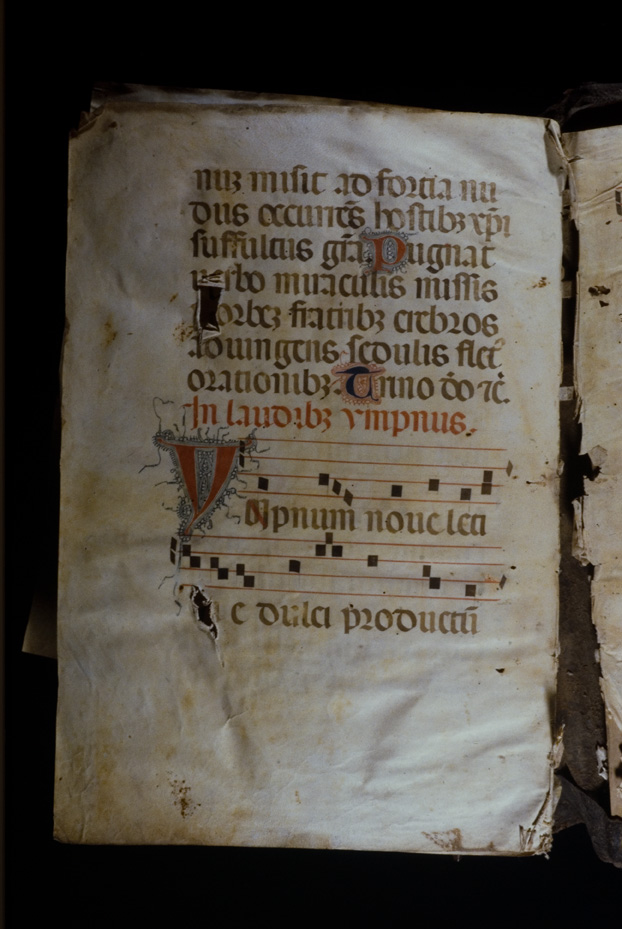 nuʒ misit ad fortia nu
dus occurrēs hostibʒ xp̄i
suffultus gr̄a Pugnat
uerbo miraculis missis
orbeʒ fratribʒ crebros
adiungens sedulis flet᷒
orationibʒ Trino dō ⁊c̄.
In laudibʒ ympnus.
Ympnum noue leti
c̄ie dulci productū